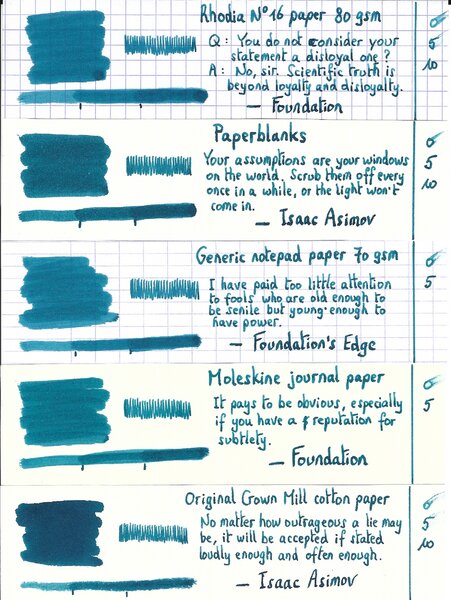 Rhodia N°16 paper 80 gsm
Q: You do not consider your
statement a disloyal one?
A: No, sir. Scientific truth is
beyond loyalty and disloyalty.
— Foundation
5
10
Paperblanks
Your assumptions are your windows
on the world. Scrub them off every
once in a while, or the light won't
come in.
— Isaac Asimov
5
10
Generic notepad paper 70 gsm
I have paid too little attention
to fools who are old enough to
be senile but young enough to
have power.
— Foundation's Edge
5
Moleskine journal paper
It pays to be obvious, especially
if you have a reputation for
subtlety.
— Foundation
5
Original Crown Mill cotton paper
No matter how outrageous a lie may
be, it will be accepted if stated
loudly enough and often enough.
— Isaac Asimov
5
10